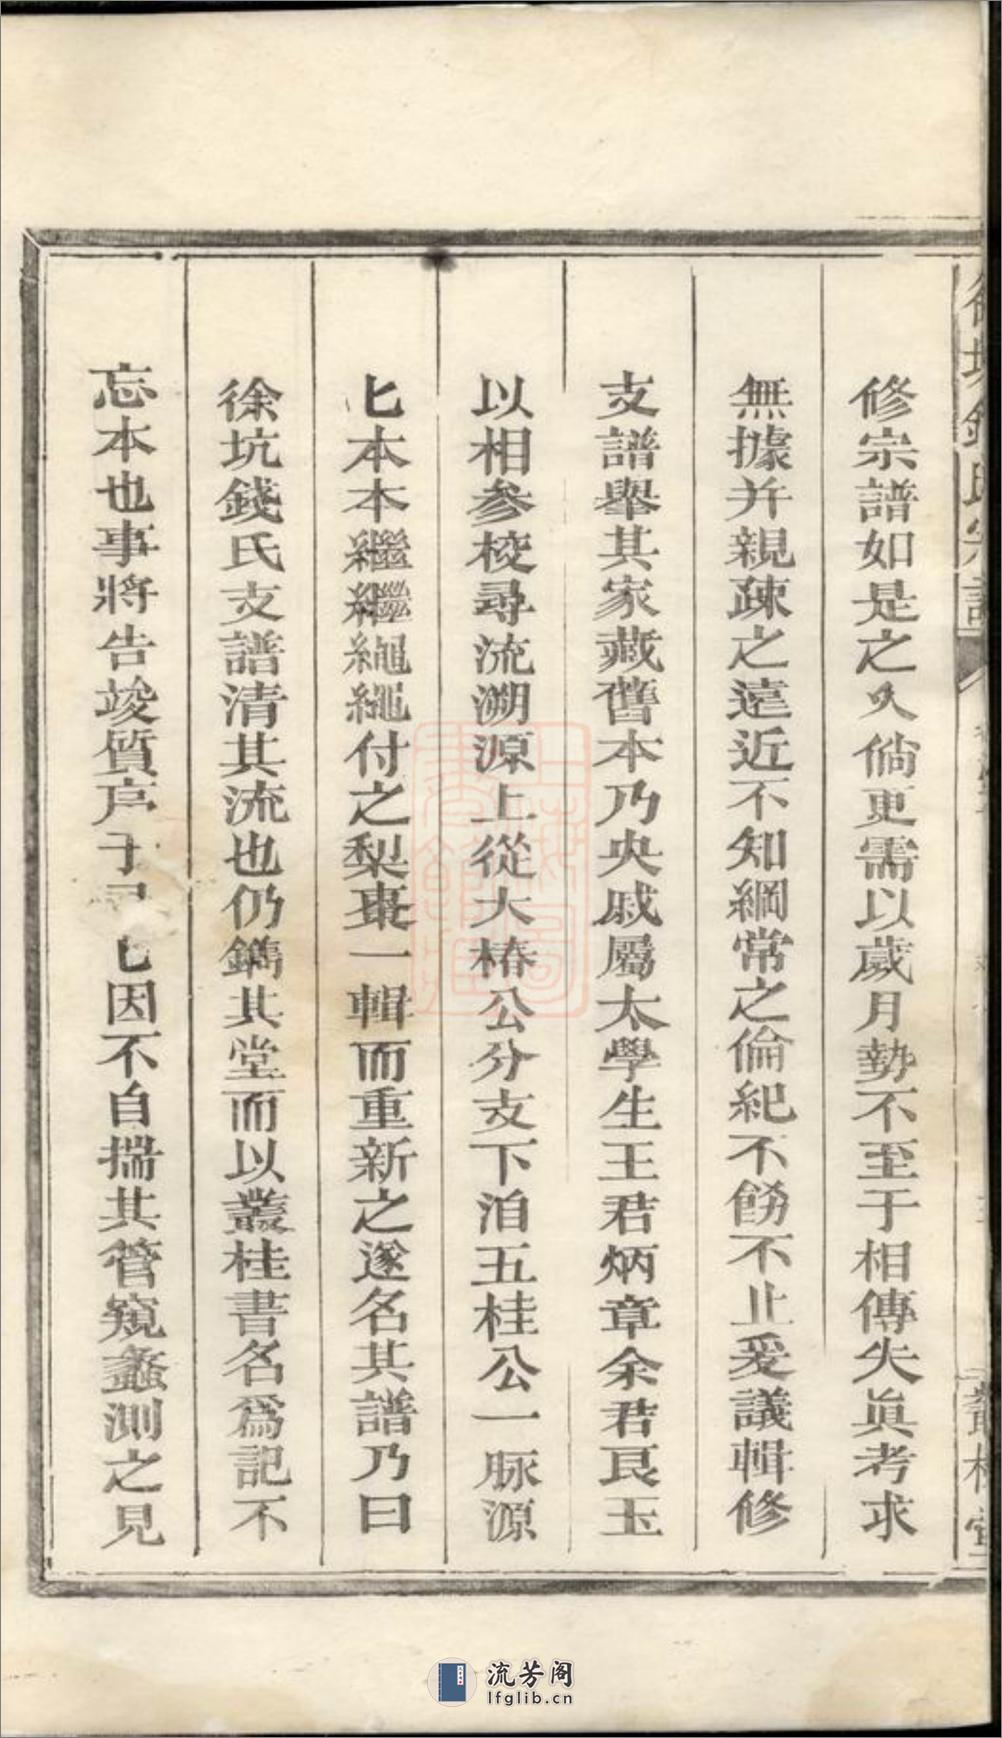 修宗譜如是之久倘更需以歲月勢不至于相傳失眞考求
無據并親疎之遠近不知綱常之倫紀不飭不止爰議輯修
支譜舉其家藏舊本乃央戚屬太學生王君炳章余君良玉
以相參校尋流溯源上從大椿公分支下洎五桂公一脈源
匕本本繼繼繩繩付之梨棗一輯而重新之遂名其譜乃曰
徐坑錢氏支譜清其流也仍鐫其堂而以叢桂書名爲記不
忘本也事將告竣質序于 匕因不自揣其管窺蠡測之見
流芳阁
lfglib.cn